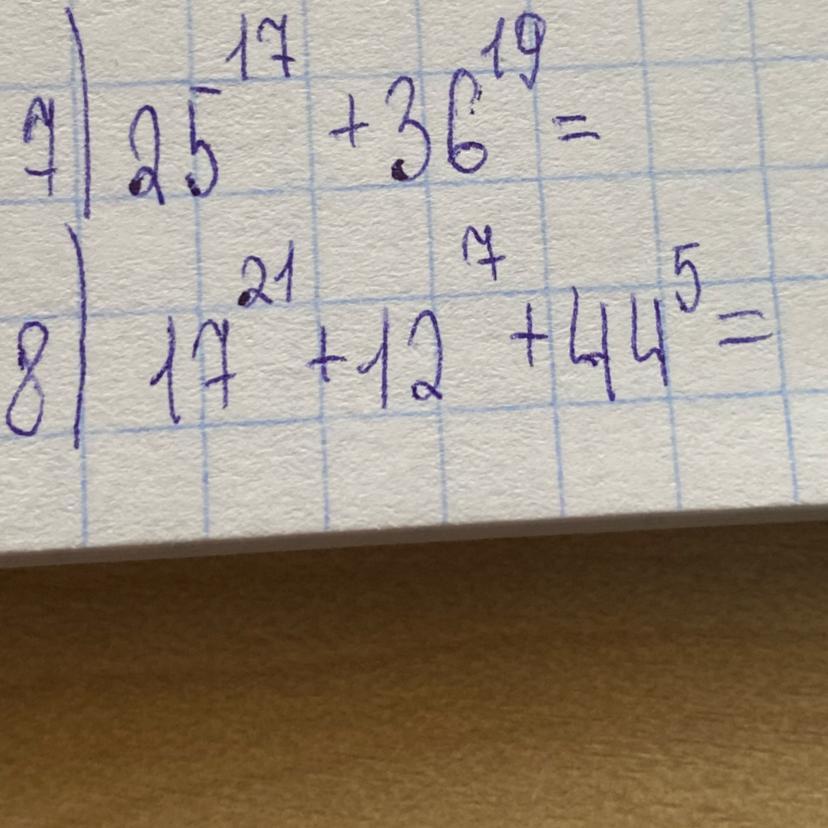 7| 25¹⁷ + 36¹⁹ =
8| 17²¹ + 12⁷ + 44⁵ =